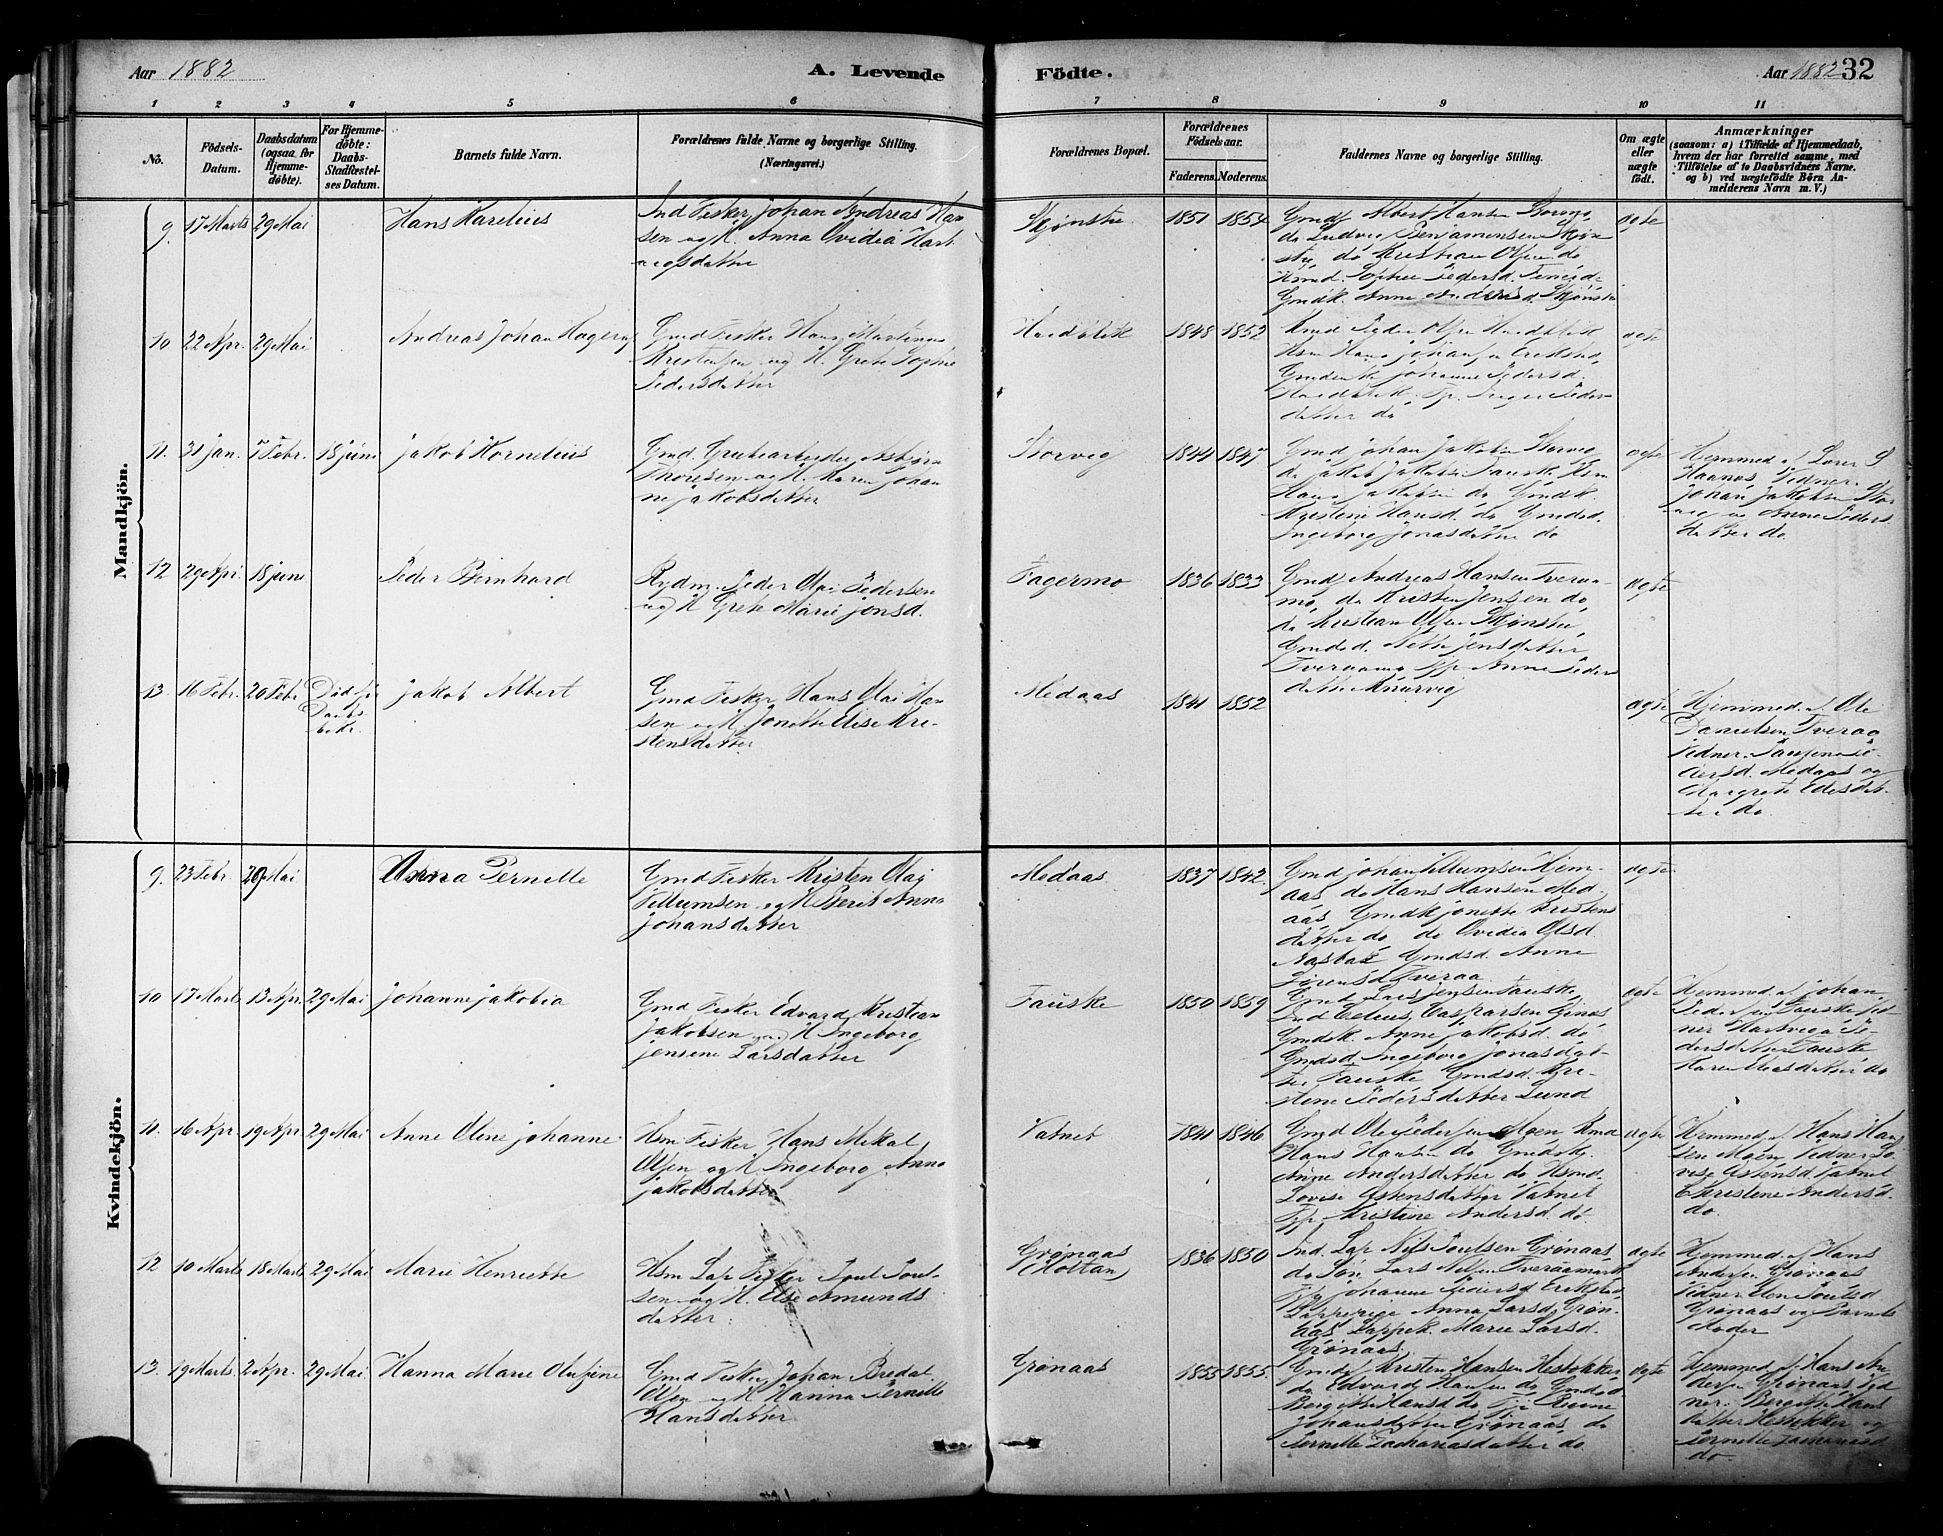 Aar 1882
A. Levende
Födte.
Aar 1882 32
1 2 3 4 5 6 7 8 9 10 11
No.
Födsels-
Datum.
Daabsdatum
(ogsaa for
Hjemme-
døbte).
For Hjemme-
døbte:
Daabs-
Stadfæstel-
ses Datum.
Barnets fulde Navn.
Forældrenes fulde Navne og borgerlige Stilling.
(Næringsvei.)
Forældrenes Bopæl.
Forældrenes
Födselsaar.
Faderens. Moderens.
Faddernes Navne og borgerlige Stilling.
Om ægte
eller
uægte
født.
Anmærkninger
(saasom: a) i Tilfælde af Hjemmedaab,
hvem der har forrettet samme, med
Tilføielse af to Daabsvidners Navne.
og b) ved uægtefödte Börn An-
melderens Navn m. V.)
Mandkjön.
9. 17 Marts 29 Mai
Hans Karelius
Ind Fisker Johan Andreas Han
sen og H. Anna Ovidia Hart
vigsdatter
Skjønstu
1851 1854
Gmd Albert Hansen Stormo
do Ludvig Benjaminsen Skjøn
stu, do Kristian Olsen do
Kmd. Sophie Pedersd.
Gmdk. Anne Andersd. Skjønstu
ægte
10 22 Apr. 29 Mai
Andreas Johan Hagerup
Gmd Fisker Hans Martinus
Kristensen og H. Grete Sophie
Pedersdatter
1848 1852
Peder Olsen
Hsm Hans Johansen Erikstad,
Johanne Pedersd.
Inger Peders
datter do
ægte
11. 31 Jan. 7 Febr. 18 Juni
Jakob Kornelius
Gmd. Grubearbeider Asbjørn
Thoresen og H. Maren Johan
ne Jakobsdatter
Storvig
1844 1847
Gmd Johan Jakobsen Storvig
do Jakob Jakobsen Fauske Hsm
Hans Jakobsen do Gmdk.
Kristine Hansd. do Gmdsd.
Ingeborg Jonasdatter do
ægte
Hjemmed. af Lærer S
Haanes, Vidner
Johan Jakobsen Stor
vig og Anne Peders
datter do.
12 29 Apr. 18 Juni
Peder Bernhard
Rydm. Peder Olai Pedersen
og H Grete Marie Jonsd.
Fagermo
1836 1833
Gmd Andreas Hansen Tveraa-
mo, do Kristen Jensen do
do Kristian Olsen Skjønstu,
Gmdsd. Netta Jensdatter
Tveraamo Tjp. Anne Peders
datter Knarvig
ægte
13. 16 Febr. 20 Febr Død før
Daabs-
bekr.
Jakob Albert
Gmd Fisker Hans Olai Han
sen og H. Jonette Elise Kri-
stensdatter
Medaas
1841 1852
ægte
Hjemmed. af Ole
Danielsen Tveraa
Vidner.
Medaas og
Margrete Edisdat-
ter do.
Kvindekjön.
9. 23 Febr. 29 Mai
Anna Pernelle
Gmd Fisker Kristen Olai
Tillumsen og H Berit Anna
Johansdatter
Medaas
1837 1842
Gmd Johan Tillumsen Hjem-
aas, do Hans Hansen Med
aas Gmdk Jonette Kristens
datter do do Ovidia Olsd.
Gmdsd. Anne
Sørensd Tveraa
ægte
10 17 Marts 13 Apr. 29 Mai
Johanne Jakobia
Gmd Fisker Edvard Kristian
Jakobsen og H Ingeborg
Jensene Larsdatter
Fauske
1850 1859
Gmd Lars Jensen Fauske,
Ind Caspersen
Gmdsk. Anne Jakobsd. do
Gmdsd. Ingeborg Jonasdat-
ter Fauske Gmdsd. Kri-
stene Pedersdatter Lund
ægte
Hjemmed. af Johan
Pedersen Fauske Vid
ner Hartviga Pe-
dersdatter Fauske
Karen Eliasdatter do
11. 16 Apr 19 Apr 29 Mai
Anne Oline Johanne
Hsm Fisker Hans Mikal
Olsen og H. Ingeborg Anna
Jakobsdatter
Vatnet
1841 1846
Gmd Ole Pedersen Moen Kmd
Hans Hansen do Gmdsk.
Anne Andersdatter do Hsmd.
Lovise Estensdatter Vatnet
Tjp. Kristine Andersd. do
ægte
Hjemmed. af Hans Han
sen Moen Vidner Lo-
vise Estensd. Vatnet
Christene Andersd.
do.
12 10 Marts 18 Marts 29 Mai
Marie Henriette
Hsm Lap Fisker Poul Poul-
sen og H. Else Amunds
datter.
Grønaas
(Koltan)
1836 1850
Ind. Lap Nils Poulsen Grønaas
do Søn Lars Nilsen Tveraamark
Tjp Johanne Pedersd Erikstad
Lappepige Anna Larsd. Grøn-
aas Lappek. Marie Larsd.
Grønaas
ægte
Hjemmed. af Hans
Andersen Grønaas
Vidner Elen Poulsd
Grønaas og Barnets
Moder
13. 19 Marts 2 Apr. 29 Mai
Hanna Marie
Gmd Fisker Johan Bredal
Olsen og H Hanna Pernelle
Hansdatter
Grønaas
1855 1855
Gmd Kristen Hansen
do Edvard Hansen do Gmdsd
Bergitte Hansd do Tjp
Johansdatter Grønaas do
Pernelle Zachariasdatter do
ægte
Hjemmed. af Hans An
dersen Grønaas Vid
ner. Bergitte Hans
datter og
Pernelle Zachariasd
do.